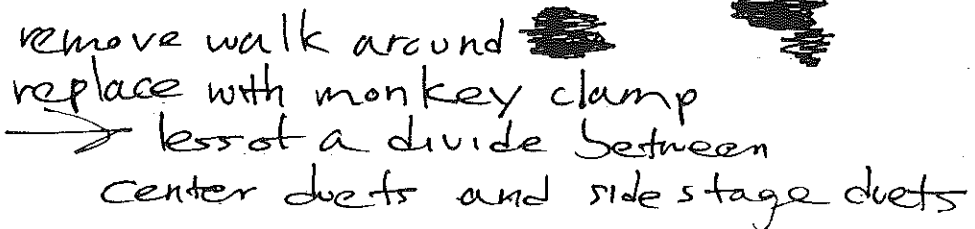 remove walk around
replace with monkey clamp
→ less of a divide between
center duets and side stage duets